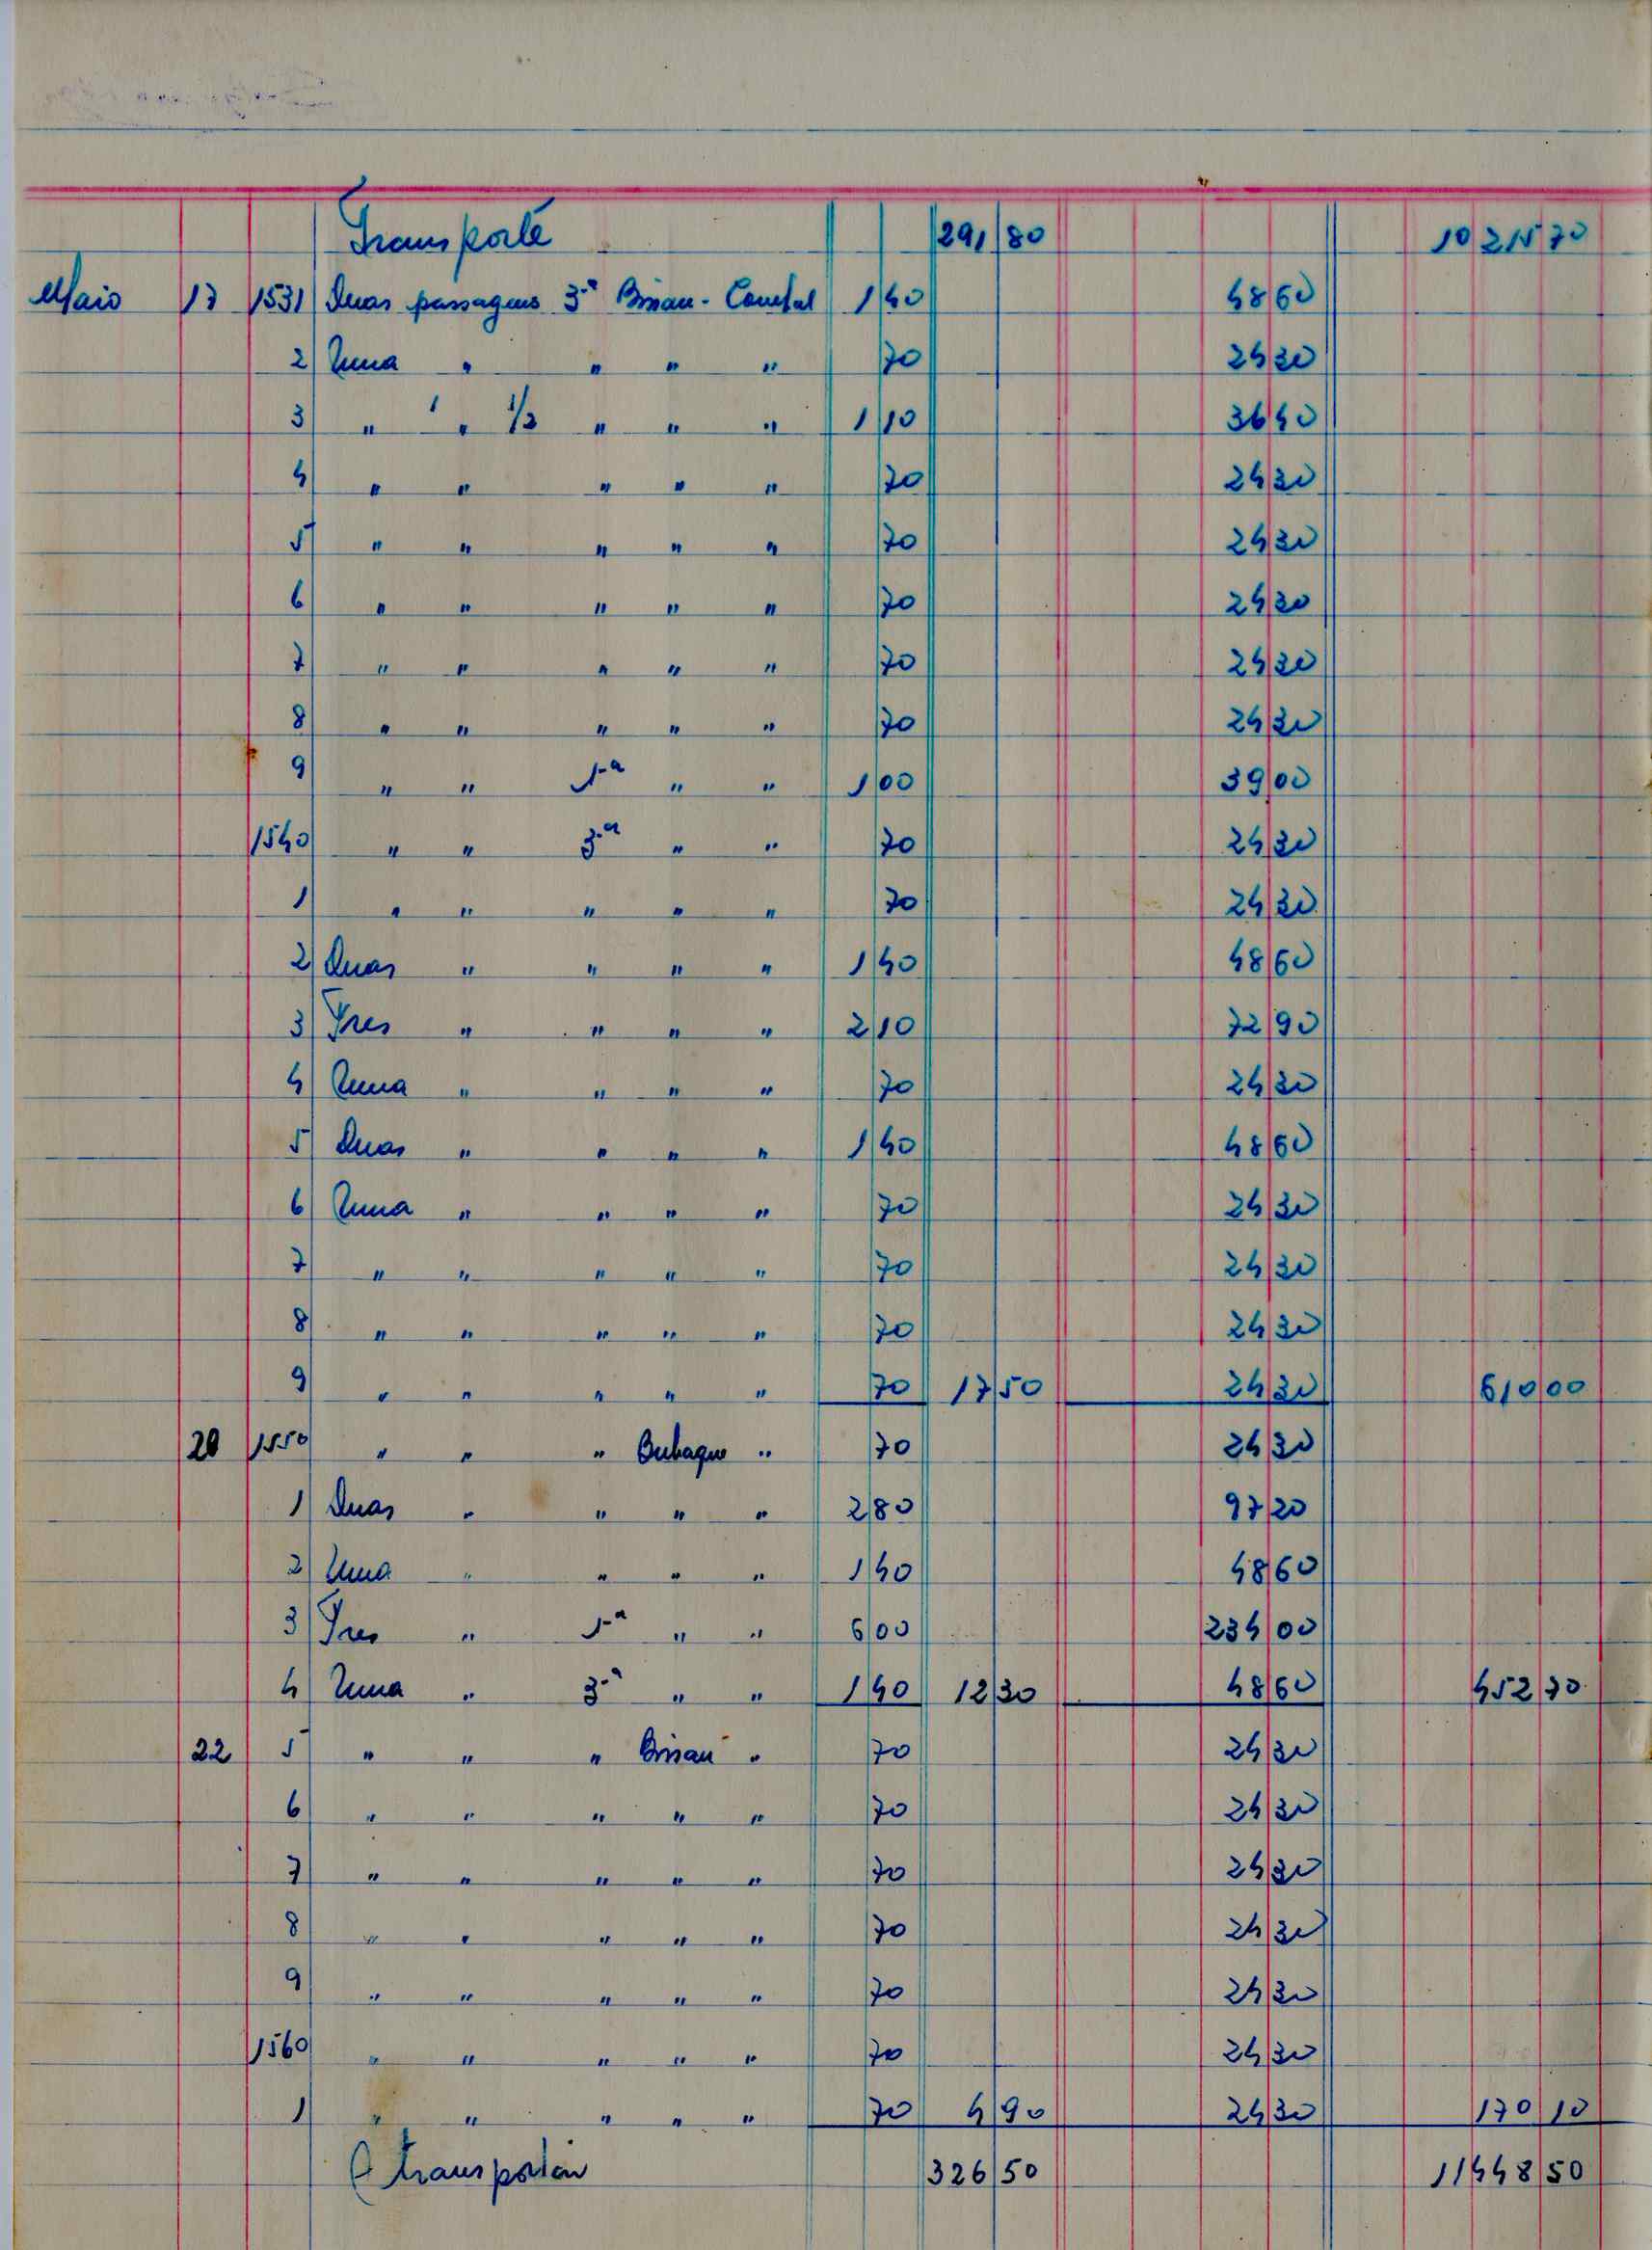 Transporte 291 80 10 215 70
Maio 17 1531 Duas passagens 3ª Bissau - 1 40 48 60
2 Uma " " " " 70 24 30
3 " 1 " 1/2 " " " 1 10 36 40
4 " " " " " 70 24 30
5 " " " " " 70 24 30
6 " " " " " 70 24 30
7 " " " " " 70 24 30
8 " " " " " 70 24 30
9 " " 1ª " " 1 00 39 00
1540 " " 3ª " " 70 24 30
1 " " " " " 70 24 30
2 Duas " " " " 1 40 48 60
3 Tres " " " " 2 10 72 90
4 Uma " " " " 70 24 30
5 Duas " " " " 1 40 48 60
6 Uma " " " " 70 24 30
7 " " " " " 70 24 30
8 " " " " " 70 24 30
9 " " " " " 70 17 50 24 30 610 00
20 1550 " " " Bubaque " 70 24 30
1 Duas " " " " 2 80 97 20
2 Uma " " " " 1 40 48 60
3 Tres " 1ª " " 6 00 234 00
4 Uma " 3ª " " 1 40 12 30 48 60 452 70
22 5 " " " Bissau " 70 24 30
6 " " " " " 70 24 30
7 " " " " " 70 24 30
8 " " " " " 70 24 30
9 " " " " " 70 24 30
1560 " " " " " 70 24 30
1 " " " " " 70 4 90 24 30 170 10
A transportar 326 50 11448 50